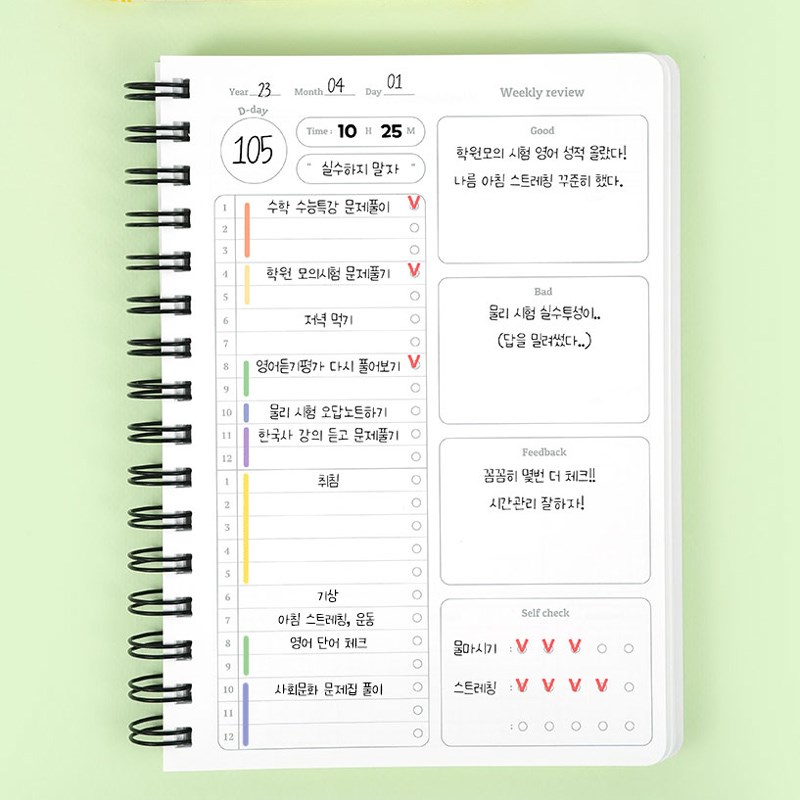 Year 23 Month 04 Day 01
D-day
105
Time : 10 H 25 M
" 실수하지 말자 "
1 수학 수능특강 문제풀이 V
2
3
4 학원 모의시험 문제풀기 V
5
6 저녁 먹기
7
8 영어듣기평가 다시 풀어보기 V
9
10 물리 시험 오답노트하기
11 한국사 강의 듣고 문제풀기
12
1 취침
2
3
4
5
6 기상
7 아침 스트레칭, 운동
8 영어 단어 체크
9
10 사회문화 문제집 풀이
11
12
Weekly review
Good
학원모의 시험 영어 성적 올랐다!
나름 아침 스트레칭 꾸준히 했다.
Bad
물리 시험 실수투성이..
(답을 밀려썼다..)
Feedback
꼼꼼히 몇번 더 체크!!
시간관리 잘하자!
Self check
물마시기 : V V V
스트레칭 : V V V V
: